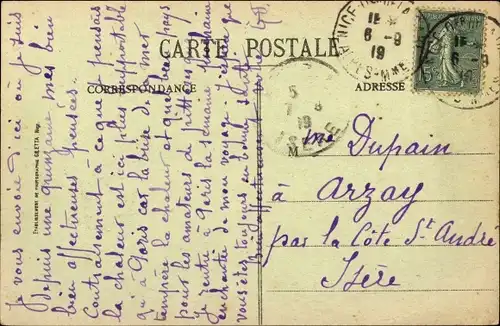 CARTE POSTALE
CORRESPONDANCE
ADRESSE
Je vous envoie d'ici où je suis
depuis une quinzaine mes bien
bien affectueuses pensées.
Contrairement à ce que je pensais
la chaleur est ici plus supportable
qu'à Paris car la brise de mer
tempère la chaleur et quel beau pays
pour les amateurs de pittoresque
Je rentre à Paris la semaine prochaine
enchantée de mon voyage. J'espère que
vous êtes toujours en bonne santé
Bien affectueusement
M me Dupain
à
Arzay
par la Côte St André
Isère
NICE
15
6 - 9
19
ALPES-Mmes
15
6 - 9
19
5
7
19